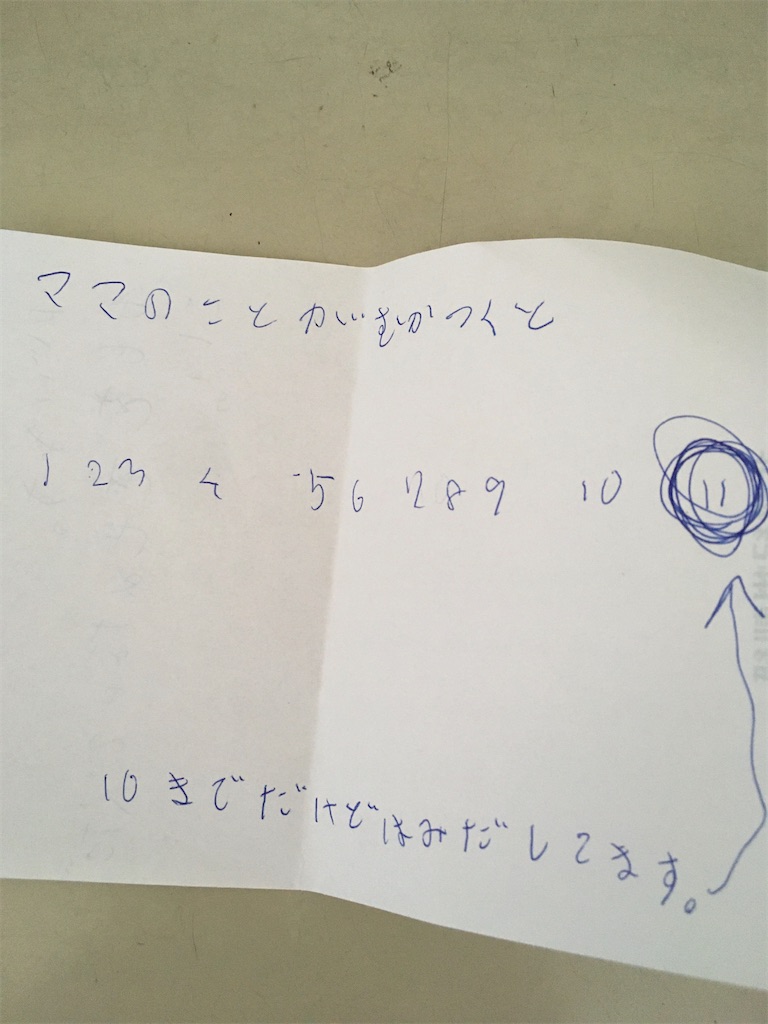 ママのことがいむかつくと
1 2 3 4 5 6 7 8 9 10 11
10までだけどはみだしてます。